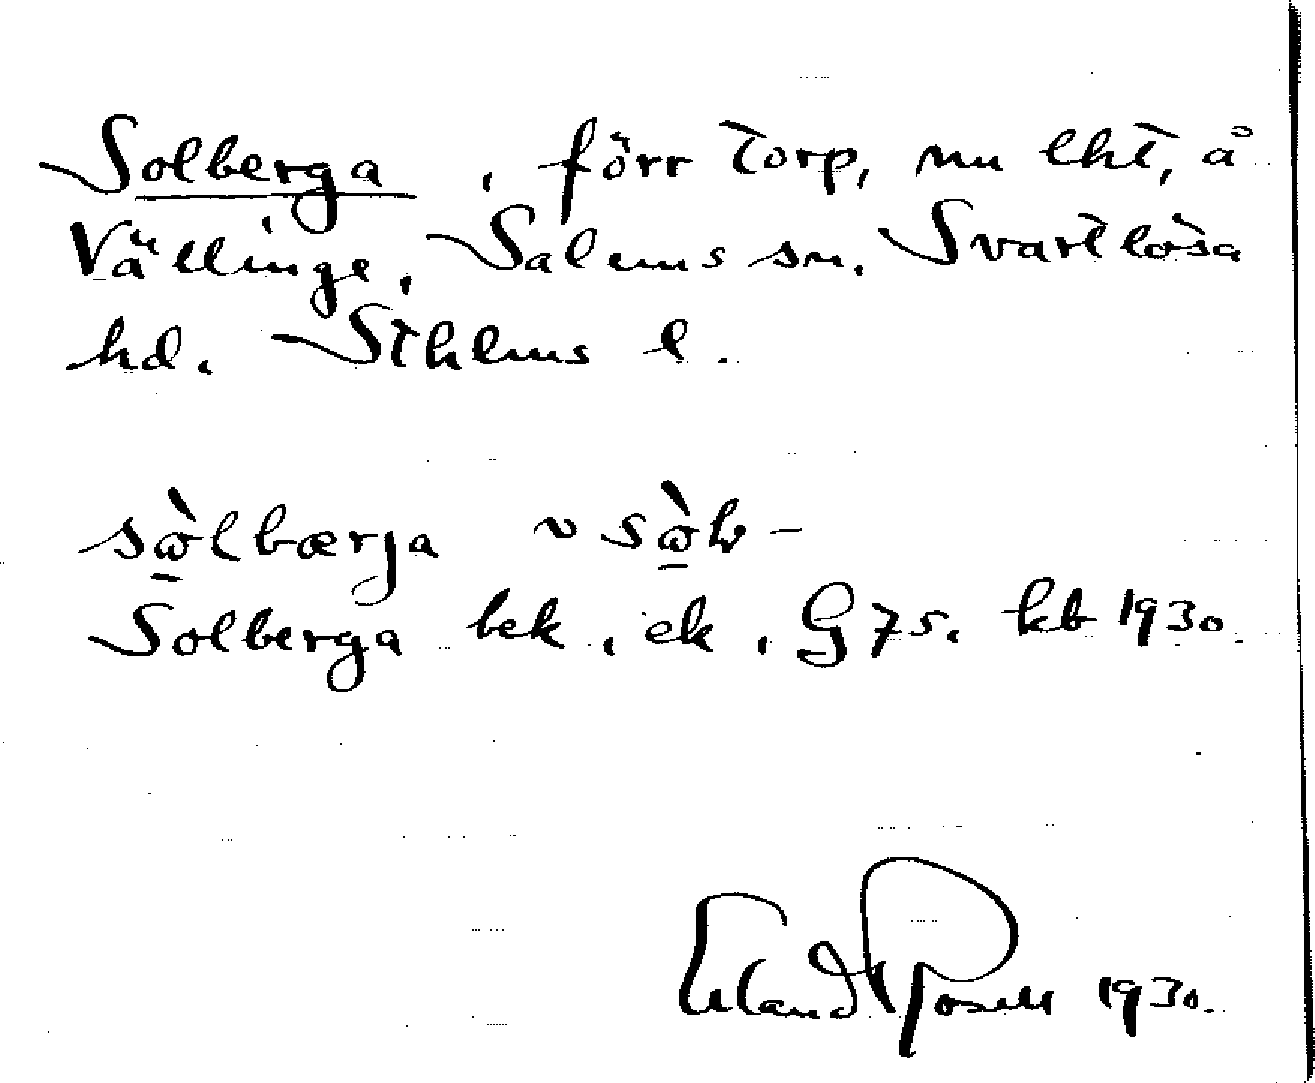 Solberga, förr torp, nu lht, å
Vällinge, Salems sn, Svartlösa
hd. Sthlms l.
sὼ̱lbærja ~ sὼ̱lb-
Solberga bek, ek, G 75. kb 1930.
Erland Rosell 1930.